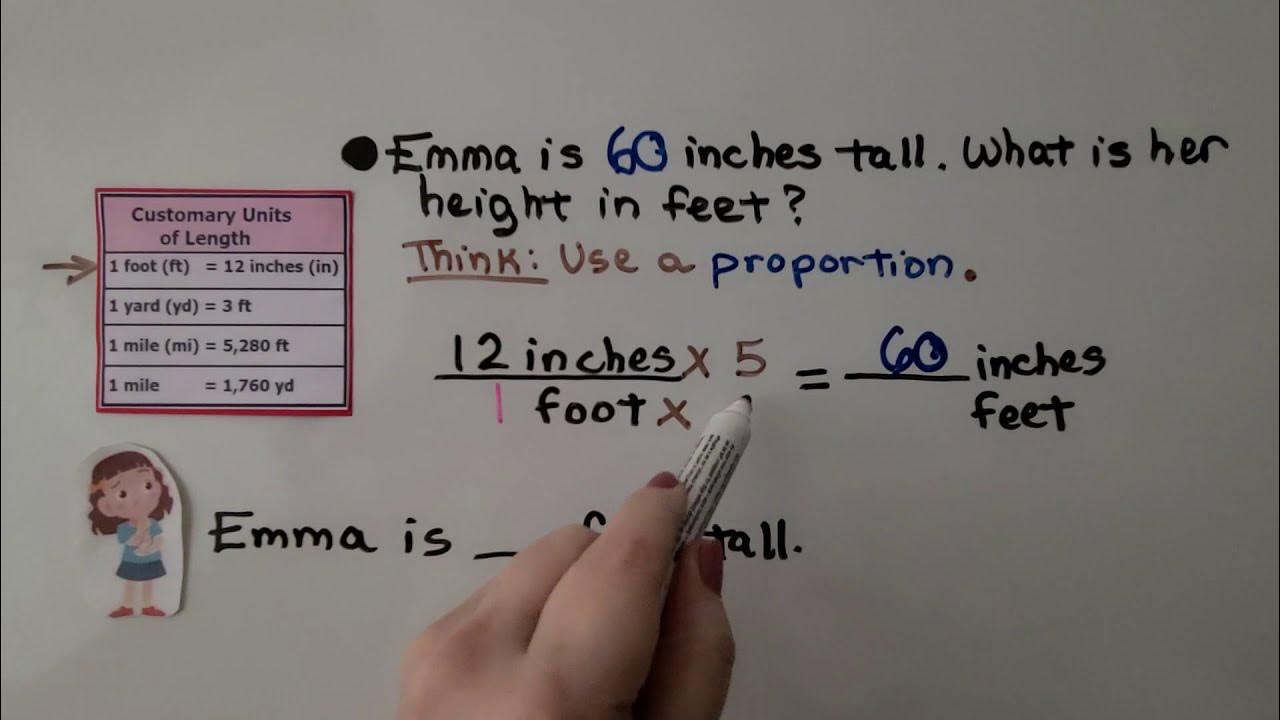 ● Emma is 60 inches tall. What is her
height in feet?
Think: Use a proportion.
Customary Units
of Length
1 foot (ft) = 12 inches (in)
1 yard (yd) = 3 ft
1 mile (mi) = 5,280 ft
1 mile = 1,760 yd
12 inches x 5 = 60 inches
1 foot x feet
Emma is __ tall.